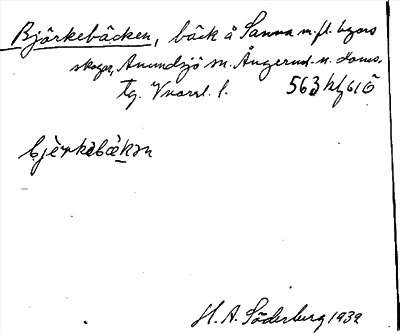 Björkebäcken, bäck å Sanna m.fl. byars
skogar, Anundsjö sn. Ångerml. n. doms.
tg. Vnorrl. l. 563 kfg 610
bjèrkebäkən
H. A. Söderberg 1939